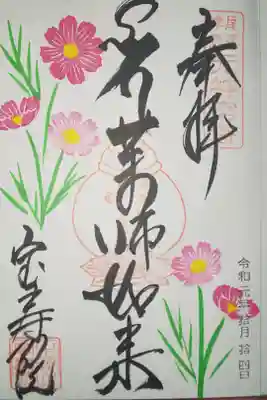 奉拝
薬師如来
宝寿院
令和元年拾月拾四日